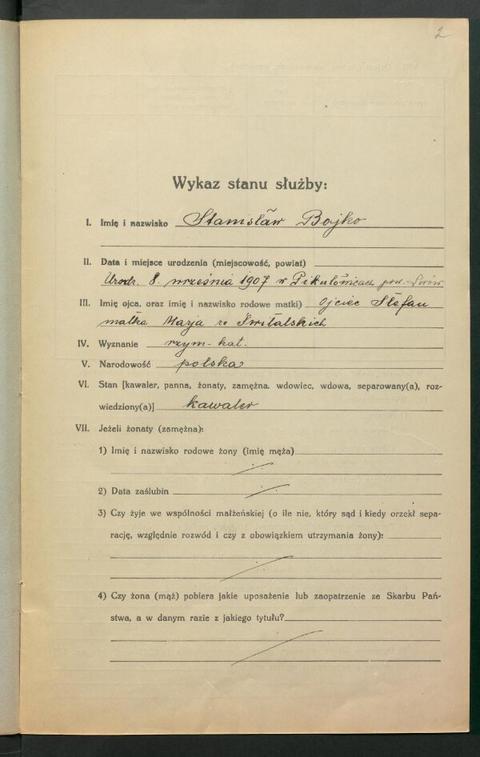 2
Wykaz stanu służby:
I. Imię i nazwisko Stanisław Bojko
II. Data i miejsce urodzenia (miejscowość, powiat)
Urodz. 8 września 1907 w Pikułowicach pow. Lwów
III. Imię ojca, oraz imię i nazwisko rodowe matki) ojciec Stefan
matka Marja ze Świtalskich
IV. Wyznanie rzym-kat.
V. Narodowość polska
VI. Stan [kawaler, panna, żonaty, zamężna, wdowiec, wdowa, separowany(a), roz-
wiedziony(a)] kawaler
VII. Jeżeli żonaty (zamężna):
1) Imię i nazwisko rodowe żony (imię męża)
2) Data zaślubin
3) Czy żyje we wspólności małżeńskiej (o ile nie, który sąd i kiedy orzekł sepa-
rację, względnie rozwód i czy z obowiązkiem utrzymania żony):
4) Czy żona (mąż) pobiera jakie uposażenie lub zaopatrzenie ze Skarbu Pań-
stwa, a w danym razie z jakiego tytułu?